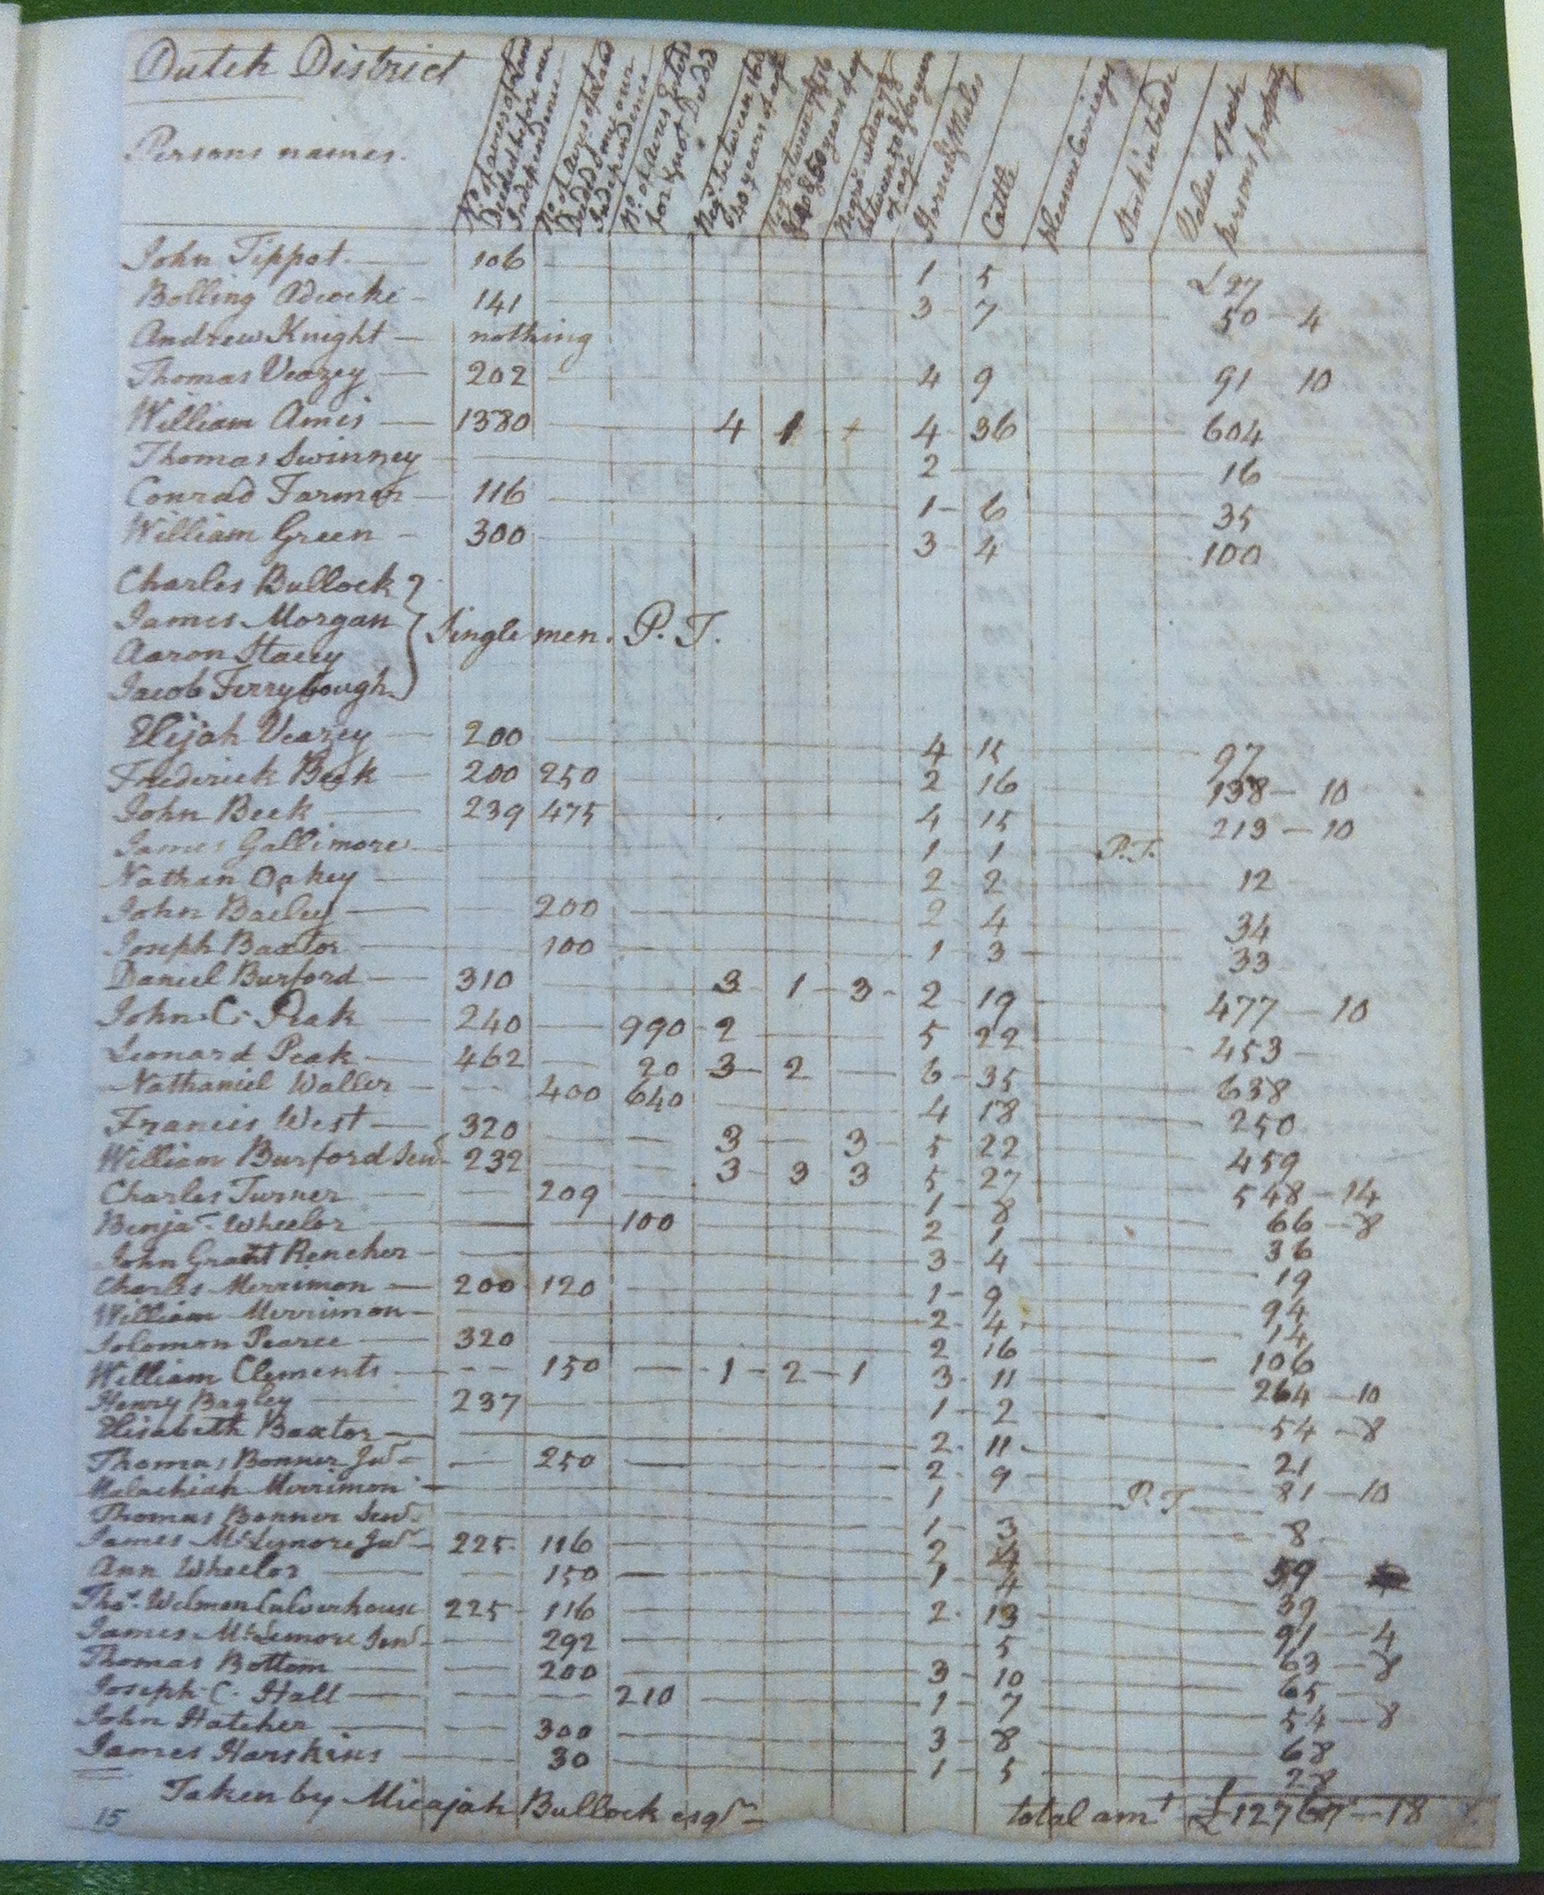 Dutch District
Persons names.
No. of acres of Land Deeded before our Independence
No. of acres of Land Deeded since our Independence
No. of acres Enterd for & not Deeded
Negs. between 16 & 40 years of age
Horses & Mules
Cattle
pleasure Carriages
Stock in trade
Value of each persons property
John Tippet 106 1 5 £27
Bolling Adcocke 141 3 7 50 - 4
Andrew Knight nothing
Thomas Veazey 202 4 9 91 10
William Amis 1380 4 1 4 36 604
Thomas Swinney 2 16
Conrad Farmer 116 1 6 35
William Green 300 3 4 100
Charles Bullock
James Morgan Single men. P. T.
Aaron Stacey
Jacob Ferrybough
Elijah Veazey 200 4 15 97
Frederick Beck 200 250 2 16 138 - 10
John Beck 239 475 4 15 213 - 10
James Gallimore 1 1 P. T.
Nathan Oakey 2 2 12
John Bailey 200 2 4 34
Joseph Baxtor 100 1 3 33
Daniel Burford 310 3 1 3 2 19 477 - 10
John C. Peak 240 990 2 5 22 453
Leonard Peak 462 20 3 2 6 35 638
Nathaniel Waller 400 640 4 18 250
Francis West 320 3 3 5 22 459
William Burford Senr 232 3 3 3 5 27 548 - 14
Charles Turner 209 1 8 66 - 8
Benja. Wheelor 100 2 1 36
John Grant Rencher 3 4 19
Charles Merrimon 200 120 1 9 94
William Merrimon 2 4 14
Solomon Pearce 320 2 16 106
William Clements 150 1 2 1 3 11 264 - 10
Henry Bagley 237 1 2 54 - 8
Elisabeth Baxtor 2 11 21
Thomas Bonner Jur 250 2 9 81 - 10
Malachiah Merrimon 1 P. T.
Thomas Bonner Senr 1 3 8
James McLemore Jur 225 116 2 4 59
Ann Wheelor 150 1 4 39
Thos. Welmon Culverhouse 225 116 2 13 91 - 4
James McLemore Senr 292 5 63 - 8
Thomas Bottom 200 3 10 65
Joseph C. Hall 210 1 7 54 - 8
John Hatcher 300 3 8 68
James Harskins 30 1 5 28
Taken by Micajah Bullock esqr total amt £12767 - 18
15